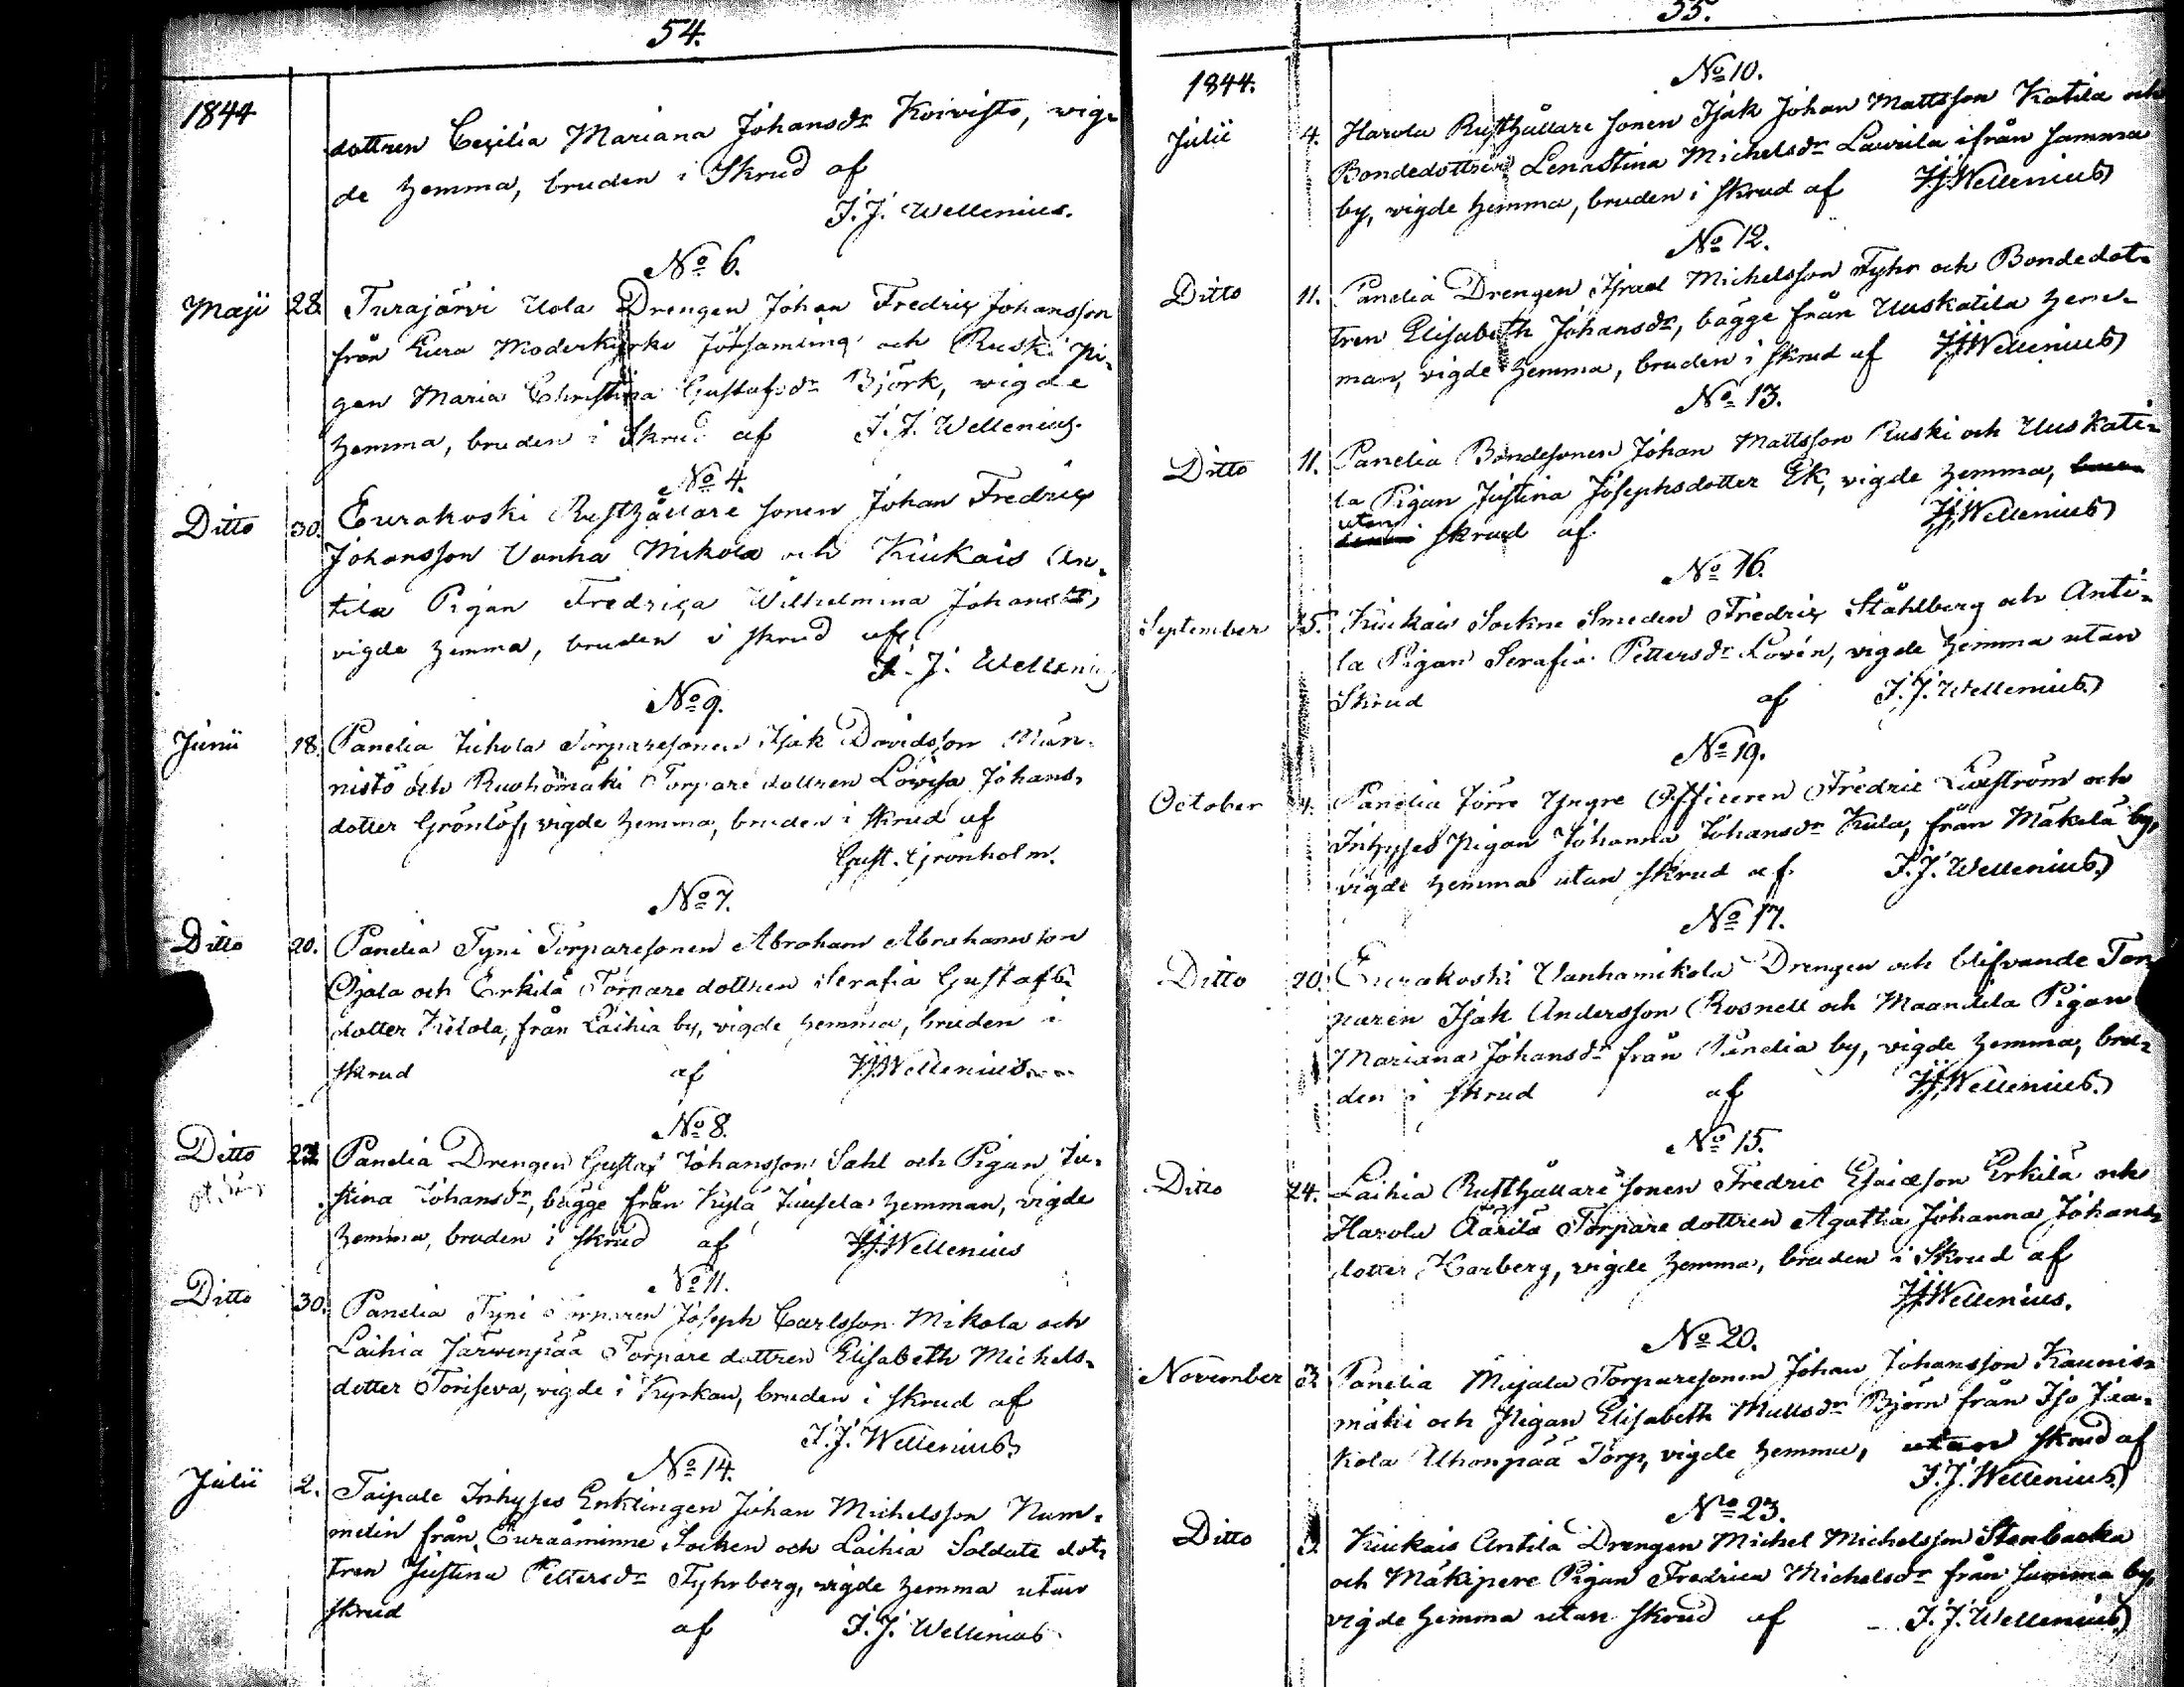 54.
1844
dottren Ceçilia Mariana Johansdr Koivisto, vig-
de hemma, bruden i Skrud af
J. J. Wellenius.
No 6.
Maji 28. Turajärvi Uola Drengen Johan Fredriç Johansson
från Eura Moderkyrko församling och Ruski Pi-
gan Maria Christina Gustafsdr Björk, vigde
hemma, bruden i Skrud af J. J. Wellenius.
No 4.
Ditto 30. Eurakoski Rusthållare sonen Johan Fredriç
Johansson Vanha Mikola och Kiukais An-
tila Pigan Fredriça Wilhelmina Johansdr,
vigde hemma, bruden i skrud af
J. J. Wellenius
No 9.
Junii 18. Panelia Torparesonen Isak Davidsson Män-
nistö och Ruohomäki Torpare dottren Lovisa Johans-
dotter Grönlöf, vigde hemma, bruden i skrud af
Gust. Grönholm.
No 7.
Ditto 20. Panelia Tyni Torparesonen Abraham Abrahamsson
Ojala och Erkilä Torpare dottren Serafia Gustafs-
dotter Kitola, från Laihia by, vigde hemma, bruden i
skrud af J.J. Wellenius
No 8.
Ditto 22. Panelia Drengen Gustaf Johansson Sahl och Pigan Ju-
stina Johansdr, bägge från Kylä hemman, vigde
hemma, bruden i skrud af J.J. Wellenius
No 11.
Ditto 30. Panelia Tyni Torparen Joseph Carlsson Mikola och
Laihia Järvenpää Torpare dottren Elisabeth Michels-
dotter Toriseva, vigde i Kyrkan, bruden i skrud af
J. J. Wellenius
No 14.
Julii 2. Taipale Inhyses Enklingen Johan Michelsson Num-
melin från Euraåminne Socken och Laihia Soldate dot-
tren Justina Pettersdr Fyhrberg, vigde hemma utan
skrud af J. J. Wellenius
55.
1844.
No 10.
Julii 4. Harola Rusthållare sonen Isak Johan Mattsson Katila och
Bondedottren Lenastina Michelsdr Laurila ifrån samma
by, vigde hemma, bruden i skrud af J.J. Wellenius
No 12.
Ditto 11. Panelia Drengen Israel Michelsson Fyhr och Bondedot-
tren Elisabeth Johansdr, bägge från Uuskatila hem-
man, vigde hemma, bruden i skrud af J.J. Wellenius
No 13.
Ditto 11. Panelia Bondesonen Johan Mattsson Ruski och Uuskati-
la Pigan Justina Josephsdotter Ek, vigde hemma,
utan skrud af J.J. Wellenius
No 16.
September 15. Kiukais Sockne Smeden Fredriç Ståhlberg och Anti-
la Pigan Serafia Pettersdr Lovén, vigde hemma utan
Skrud af J. J. Wellenius
No 19.
October 4. Panelia Yngre Officeren Fredric och
Inhyses Pigan Johanna Johansdr Kula, från Mäkelä by,
vigde hemma utan skrud af J. J. Wellenius
No 17.
Ditto 20. Eurakoski Vanhamikola Drengen och blifvande Tor-
paren Isak Andersson Rosnell och Maandila Pigan
Mariana Johansdr från Panelia by, vigde hemma, bru-
den i skrud af J.J. Wellenius
No 15.
Ditto 24. Laihia Rusthållare sonen Fredric Esaiæson Erkilä och
Harola Äärilä Torpare dottren Agatha Johanna Johans-
dotter Karberg, vigde hemma, bruden i Skrud af
J.J. Wellenius.
No 20.
November 3. Panelia Mujala Torparesonen Johan Johansson Kaunis-
mäki och Pigan Elisabeth Mattsdr Björn från Iso Jaa-
kola Uhonpää Torp, vigde hemma, utan skrud af
J. J. Wellenius
No 23.
Ditto Kiukais Antila Drengen Michel Michelsson Stenbacka
och Mäkipere Pigan Fredrica Michelsdr från samma by,
vigde hemma utan skrud af J. J. Wellenius